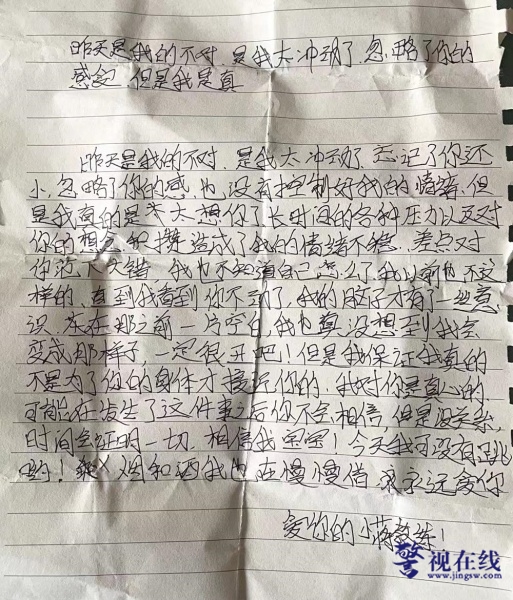 昨天是我的不对,是我太冲动了,忽略了你的
感受,但是我是真
昨天是我的不对,是我太冲动了,忘记了你还
小,忽略了你的感 也没有控制好我的情绪,但
是我真的是 太想你了长时间的各种压力以及对
你的想念积攒造成了我的情绪不稳,差点对
你犯下大错 我也不知道自己怎么了,我以前也不这
样的,直到我看到你不动了,我的脑子才有了一丝意
识,在那之前一片空白,我也真没想到我会
变成那样子,一定很 吧!但是我保证我真的
不是为了你的身体才接近你的,我对你是真心的,
可能在发生了这件事之后你不会相信,但是没关系,
时间会证明一切,相信我宝宝!今天我可没有
哟! 烟和酒我也在慢慢借 永远爱你
爱你的小蒋教练!
警视在线
www.jingsw.com